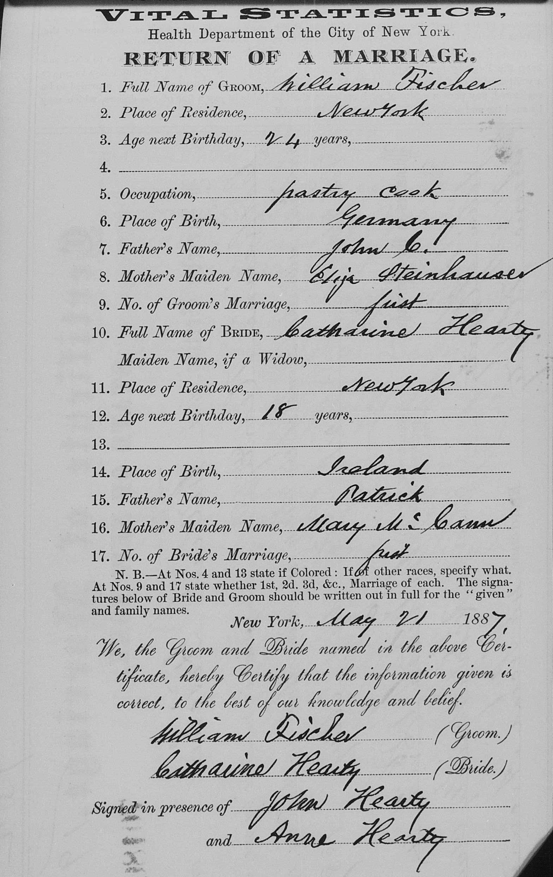 VITAL STATISTICS,
Health Department of the City of New York.
RETURN OF A MARRIAGE.
1. Full Name of GROOM, William Fischer
2. Place of Residence, New York
3. Age next Birthday, 24 years,
4.
5. Occupation, pastry cook
6. Place of Birth, Germany
7. Father's Name, John C.
8. Mother's Maiden Name, Eliza Steinhauser
9. No. of Groom's Marriage, first
10. Full Name of BRIDE, Catharine Hearty
Maiden Name, if a Widow,
11. Place of Residence, New York
12. Age next Birthday, 18 years,
13.
14. Place of Birth, Ireland
15. Father's Name, Patrick
16. Mother's Maiden Name, Mary McCann
17. No. of Bride's Marriage, first
N. B.—At Nos. 4 and 13 state if Colored; If of other races, specify what.
At Nos. 9 and 17 state whether 1st, 2d, 3d, &c., Marriage of each. The signa-
tures below of Bride and Groom should be written out in full for the "given"
and family names.
New York, May 21 1887,
We, the Groom and Bride named in the above Cer-
tificate, hereby Certify that the information given is
correct, to the best of our knowledge and belief.
William Fischer (Groom.)
Catharine Hearty (Bride.)
Signed in presence of John Hearty
and Anne Hearty